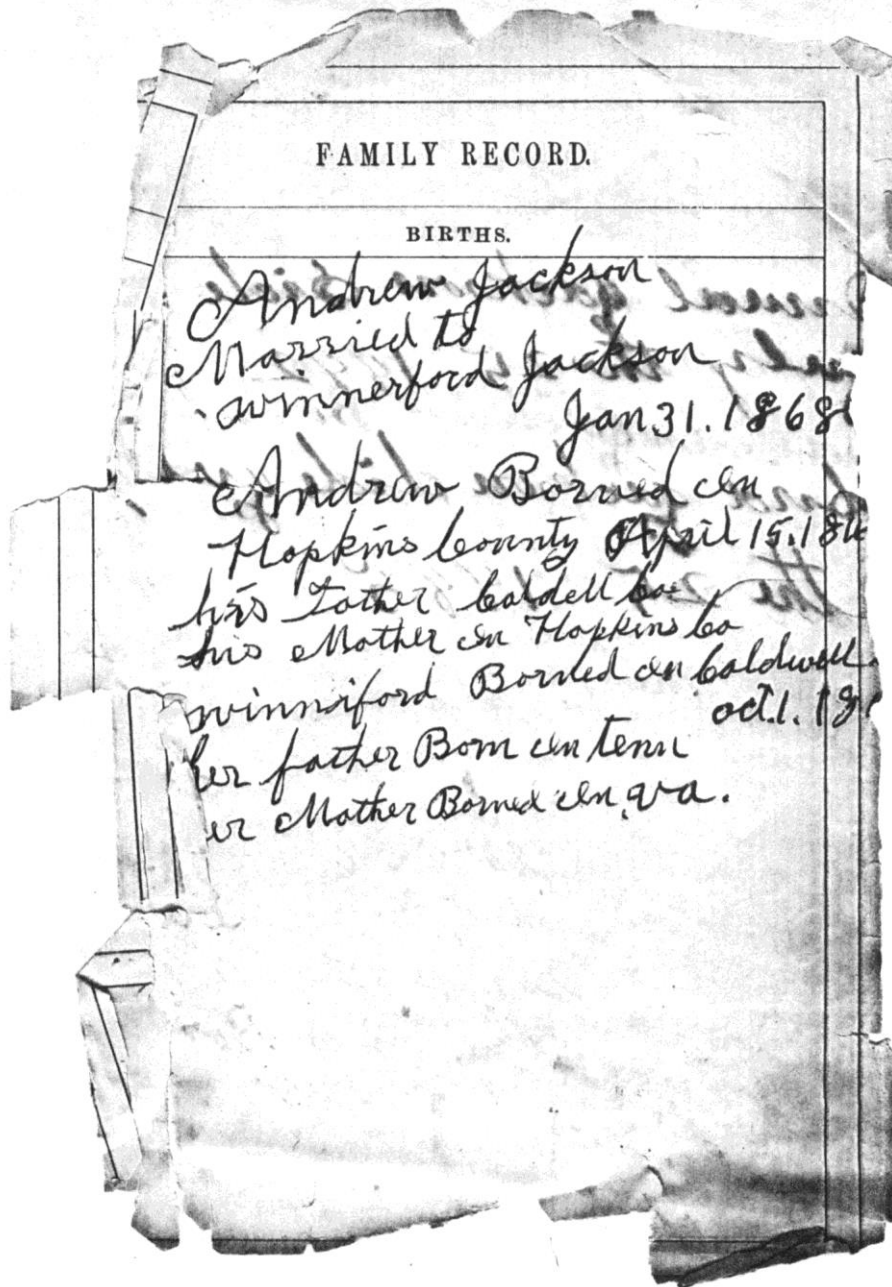 FAMILY RECORD.
BIRTHS.
Andrew Jackson
Married to
winnerford Jackson
Jan 31. 1868
Andrew Borned in
Hopkins County April 15. 18
his Father Caldell Co
his Mother in Hopkins Co
winniford Borned in Caldwell
oct. 1. 18
her father Born in tenn
er Mother Borned in va.